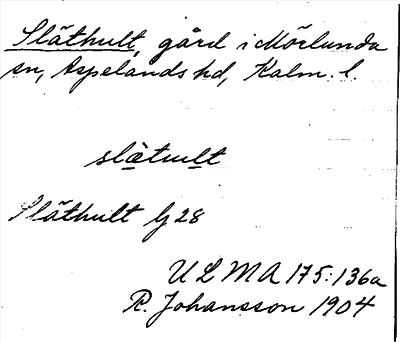 Släthult, gård i Mörlunda
sn, Aspelands hd, Kalm. l.
slätult
Släthult Lj 28
ULMA 175:136a
R. Johansson 1904